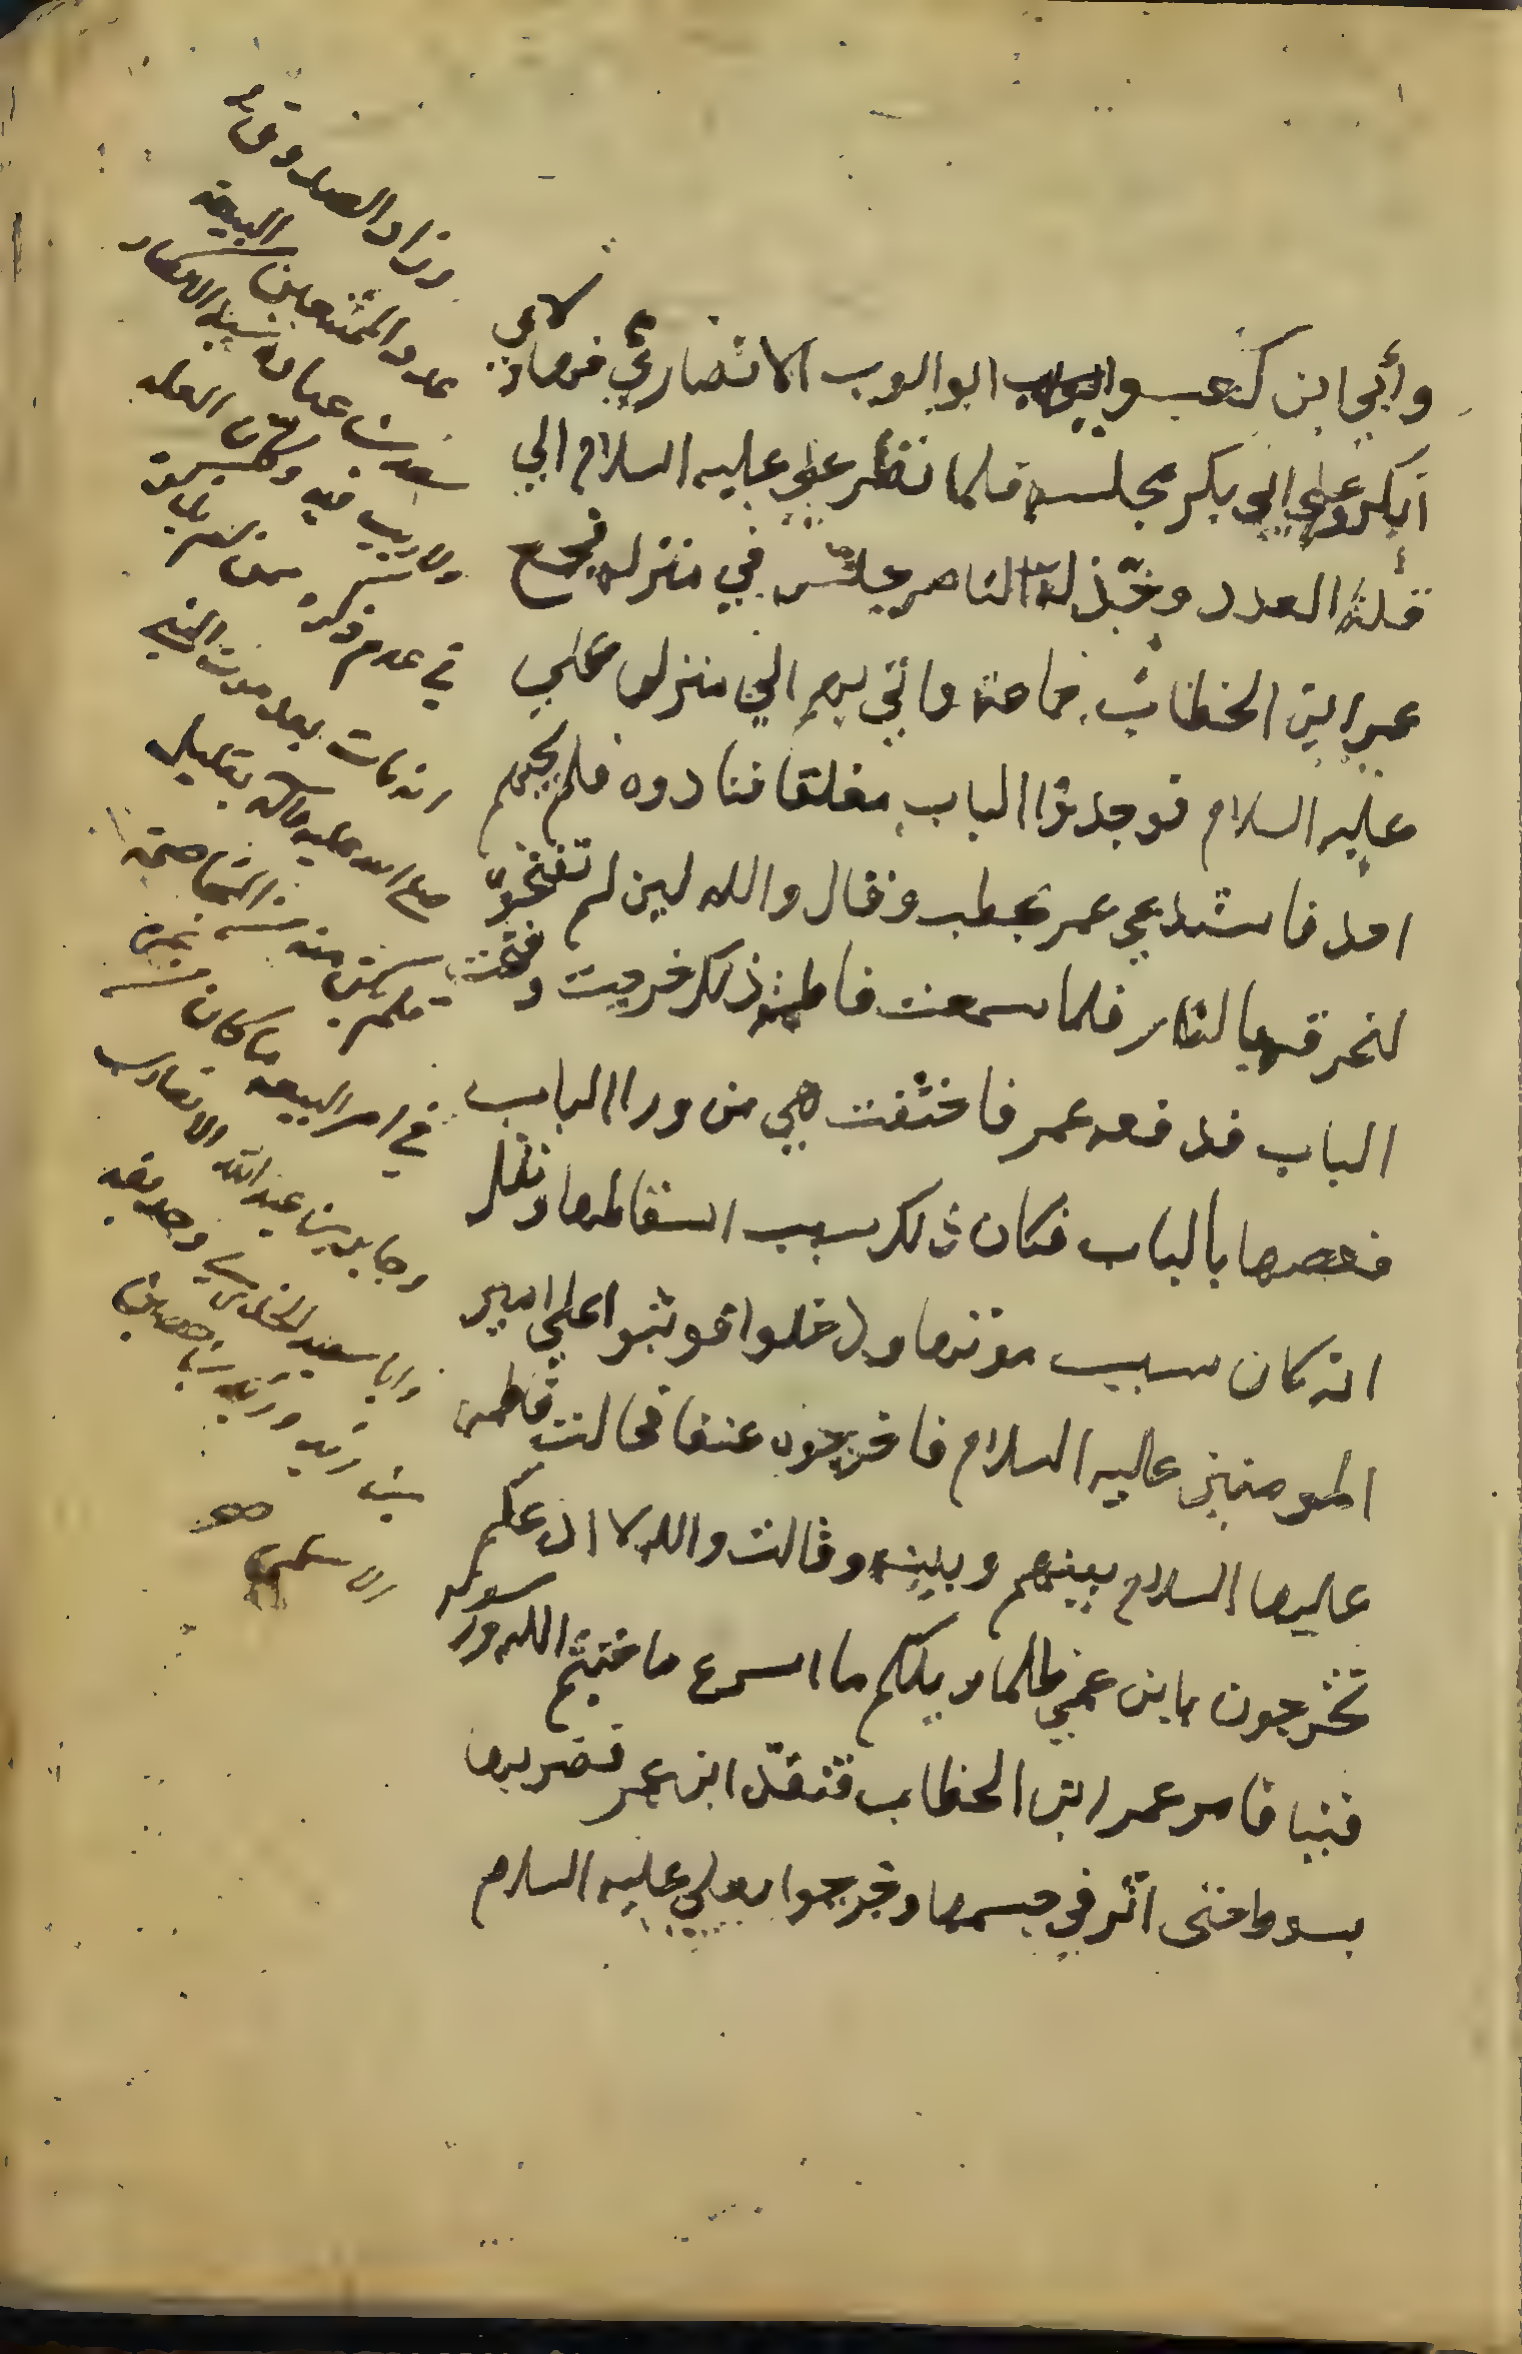 وأبي ابن كعب وابو ايوب الانصاري فصار لابي
ابكر وعلي ابي بكر مجلسه فلما نظر علي عليه السلام الي
قلة العدد وتخذله الناصر جلس في منزله فجمع
عمر ابن الخطاب جماعة واتي بهم الي منزل علي
عليه السلام فوجدوا الباب مغلقا فنادوه فلم يجبهم
احد فاستدعي عمر بحطب وقال والله لين لم تفتحوا
لنحرقنه بالنار فلما سمعت فاطمة ذلك خرجت وفتحت
الباب فدفعه عمر فاختفت هي من ورا الباب
فعصرها بالباب فكان ذلك سبب اسقاطها ونقل
انه كان سبب موتها ودخلوا فوثبوا علي امير
المومنين عليه السلام فاخرجوه عنفا فحالت فاطمة
عليها السلام بينهم وبينه وقالت والله لا ادعكم
تخرجون بابن عمي ظلما ويلكم ما اسرع ما خنتم الله ورسوله
فينا فامر عمر ابن الخطاب قنفذ ابن عمر فضربها
بسوط حتى اثر في جسمها وخرجوا بعلي عليه السلام
وزاد الصدوق ره
عدد الممتنعين البيعة
سعد بن عبادة سيد الانصار
ولا ريب فيه العلة
في عدم ذكره
انه مات بعد موت النبي
صلى الله عليه وآله بقليل
فلم يكن منه من المخاصمة
في امر البيعه ما كان من غيره
وجابر بن عبد الله الانصاري
وابا سعيد الخدري وحذيفه
بن
الاسلمي